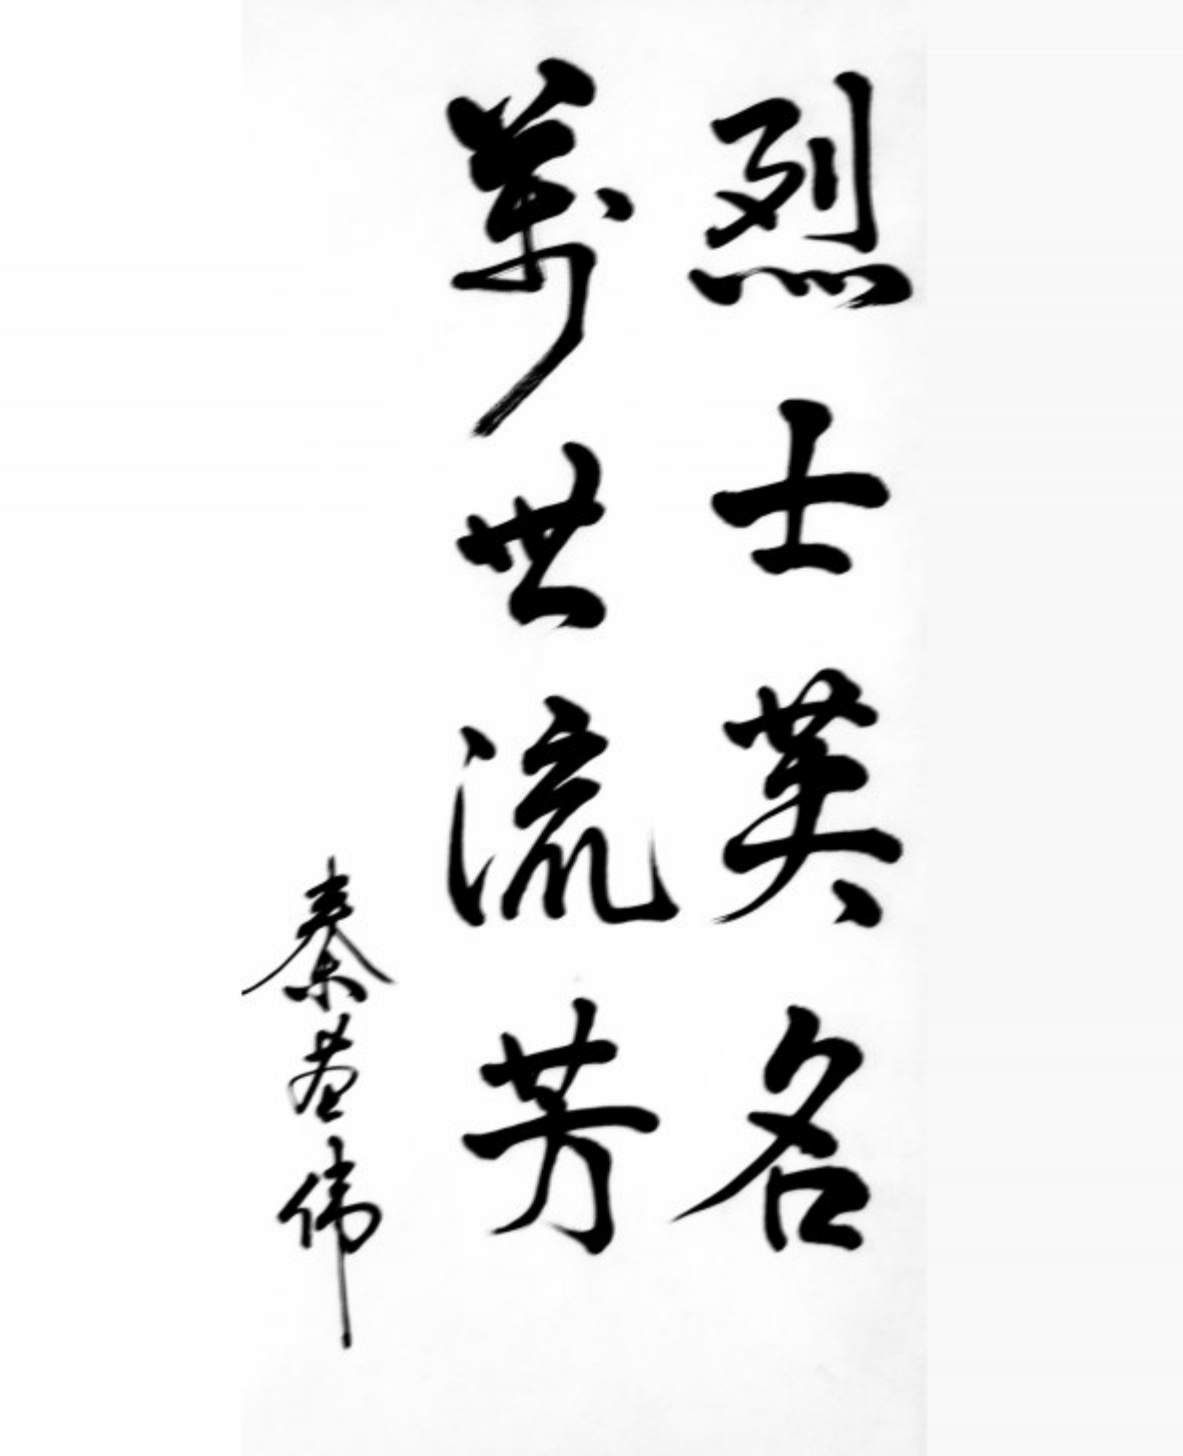 烈士英名
萬世流芳
秦基伟